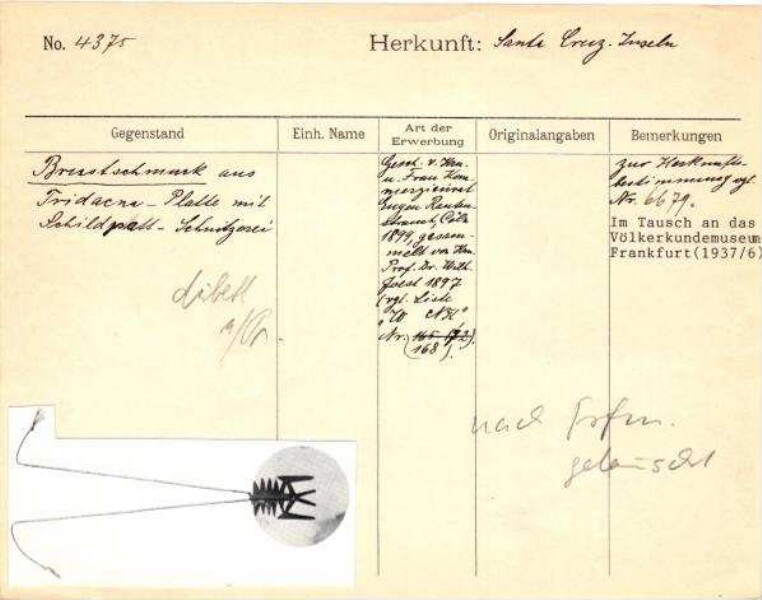 No. 4375 Herkunft: Santa Cruz-Inseln
Gegenstand Einh. Name Art der Erwerbung Originalangaben Bemerkungen
Brustschmuck aus
Tridacna-Platte mit
Schildpatt-Schnitzerei
Gesch. v. Hrn.
u. Frau Kom-
merzienrat
Eugen Rauten-
strauch, Cöln
1899, gesam-
melt von Hrn.
Prof. Dr. Wilh.
Joest 1897
(vgl. Liste
Nr. 165 (72)
(168).
zur Herkunfts-
bestimmung vgl.
Nr. 6679.
Im Tausch an das
Völkerkundemuseum
Frankfurt(1937/6)
nach
getauscht